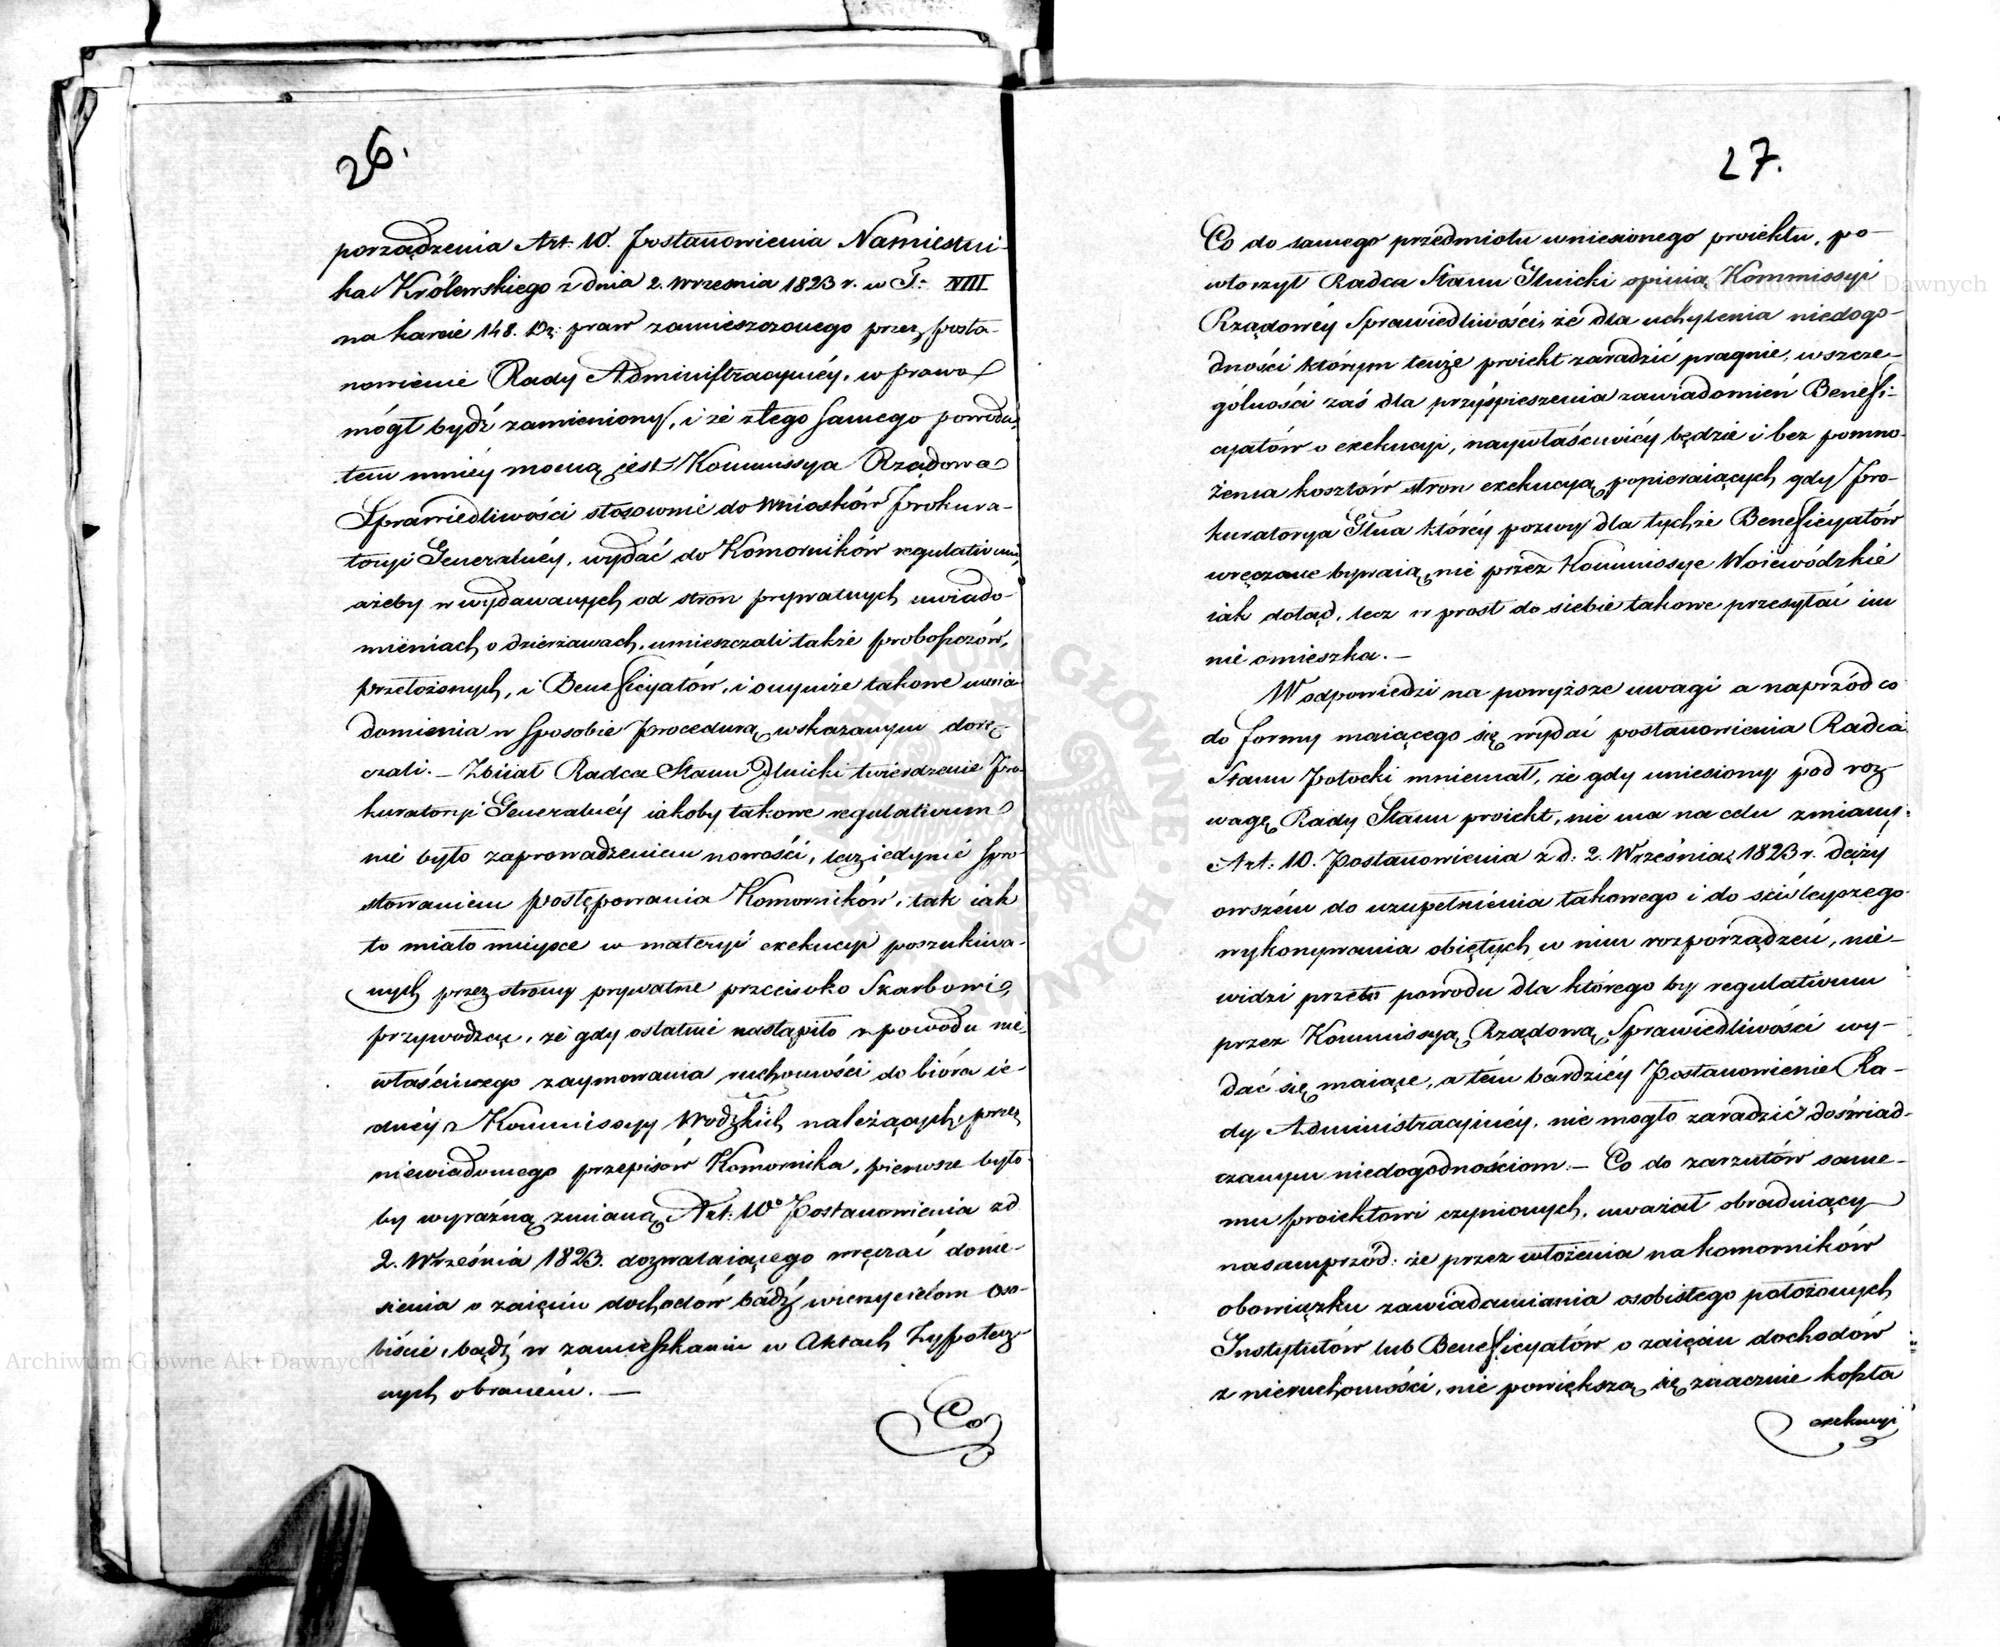 26.
porządzenia Art. 10. Postanowienia Namiestni-
ka Królewskiego z dnia 2. Wrzesnia 1823 r. w T: VIII
na karcie 148. Dz: praw zamieszczonego przez posta-
nowienie Rady Administracyinéy, w prawo
mógł bydź zamieniony, i że z tego samego powodu,
tem mniéy mocną jest Kommissya Rządowa
Sprawiedliwości stosownie do wniosków Prokura-
toryi Generalnéy, wydać do Komorników regulativum,
ażeby w wydawanych od stron prywatnych uwiado-
mieniach o dzierżawach, umieszczali także proboszczów,
przełożonych, i Beneficyatów, i onymże takowe uwia-
domienia w sposobie Procedurą wskazanym dorę-
czali. – Zbiiał Radca Stanu Ilnicki twierdzenie Pro-
kuratoryi Generalnéy iakoby takowe regulativum
nie było zaprowadzeniem nowości, lecz iedynie spro-
stowaniem postępowania Komorników, tak iak
to miało mieysce w materyi exekucyi poszukiwa-
nych przez strony prywatne przeciwko Skarbowi,
przywodząc, że gdy ostatnie nastąpiło z powodu nie-
właściwego zaymowania ruchomości do bióra ie-
dnéy z Kommissyy Wodzkich należących, przez
niewiadomego przepisów Komornika, pierwsze było-
by wyraźną zmianą Art: 10º Postanowienia z d
2. Września 1823. dozwalaiącego wręczać donie-
sienia o zaięciu dochodów bądź wierzycielom oso-
biście, bądź w zamieszkaniu w Aktach hypotecz-
nych obraném. —
Co
27.
Co do samego przedmiotu wniesionego proiektu, po-
wtorzył Radca Stanu Ilnicki opinią Kommissyi
Rządowéy Sprawiedliwości, że dla uchylenia niedogo-
dności którym tenże proiekt zaradzić pragnie, w szcze-
gólności zaś dla przyśpieszenia zawiadomień Benefi-
cyatów o exekucyi, naywłaściwiéy będzie i bez pomno-
żenia kosztów stron exekucyą popieraiących, gdy Pro-
kuratorya Głna któréy pozwy dla tychże Beneficyatów
wręczane bywaią, nie przez Kommissye Woiewódzkie
iak dotąd, lecz w prost do siebie takowe przesyłać im
nie omieszka. –
W odpowiedzi na powyższe uwagi a naprzód co
do formy maiącego się wydać postanowienia Radca
Stanu Potocki mniemał, że gdy wniesiony pod roz-
wagę Rady Stanu proiekt, nie ma na celu zmiany
Art: 10. Postanowienia z d: 2. Września 1823 r. dąży
owszém do uzupełnienia takowego i do sciśleyszego
wykonywania obiętych w nim rozporządzeń, nie-
widzi przeto powodu dla którego by regulativum
przez Kommissyą Rządową Sprawiedliwości wy-
dać się maiące, a tém bardziéy Postanowienie Ra-
dy Administracyinéy, nie mogło zaradzić doświad-
czanym niedogodnościom. – Co do zarzutów same-
mu proiektowi czynionych, uważał obraduiący
nasamprzód: że przez włożenia na komorników
obowiązku zawiadamiania osobistego położonych
Instytutów lub Beneficyatów o zaięciu dochodów
z nieruchomości, nie powiększą się znacznie koszta
exekucyi
Archiwum Główne Akt Dawnych
Archiwum Główne Akt Dawnych
ARCHIWUM GŁÓWNE AKT DAWNYCH